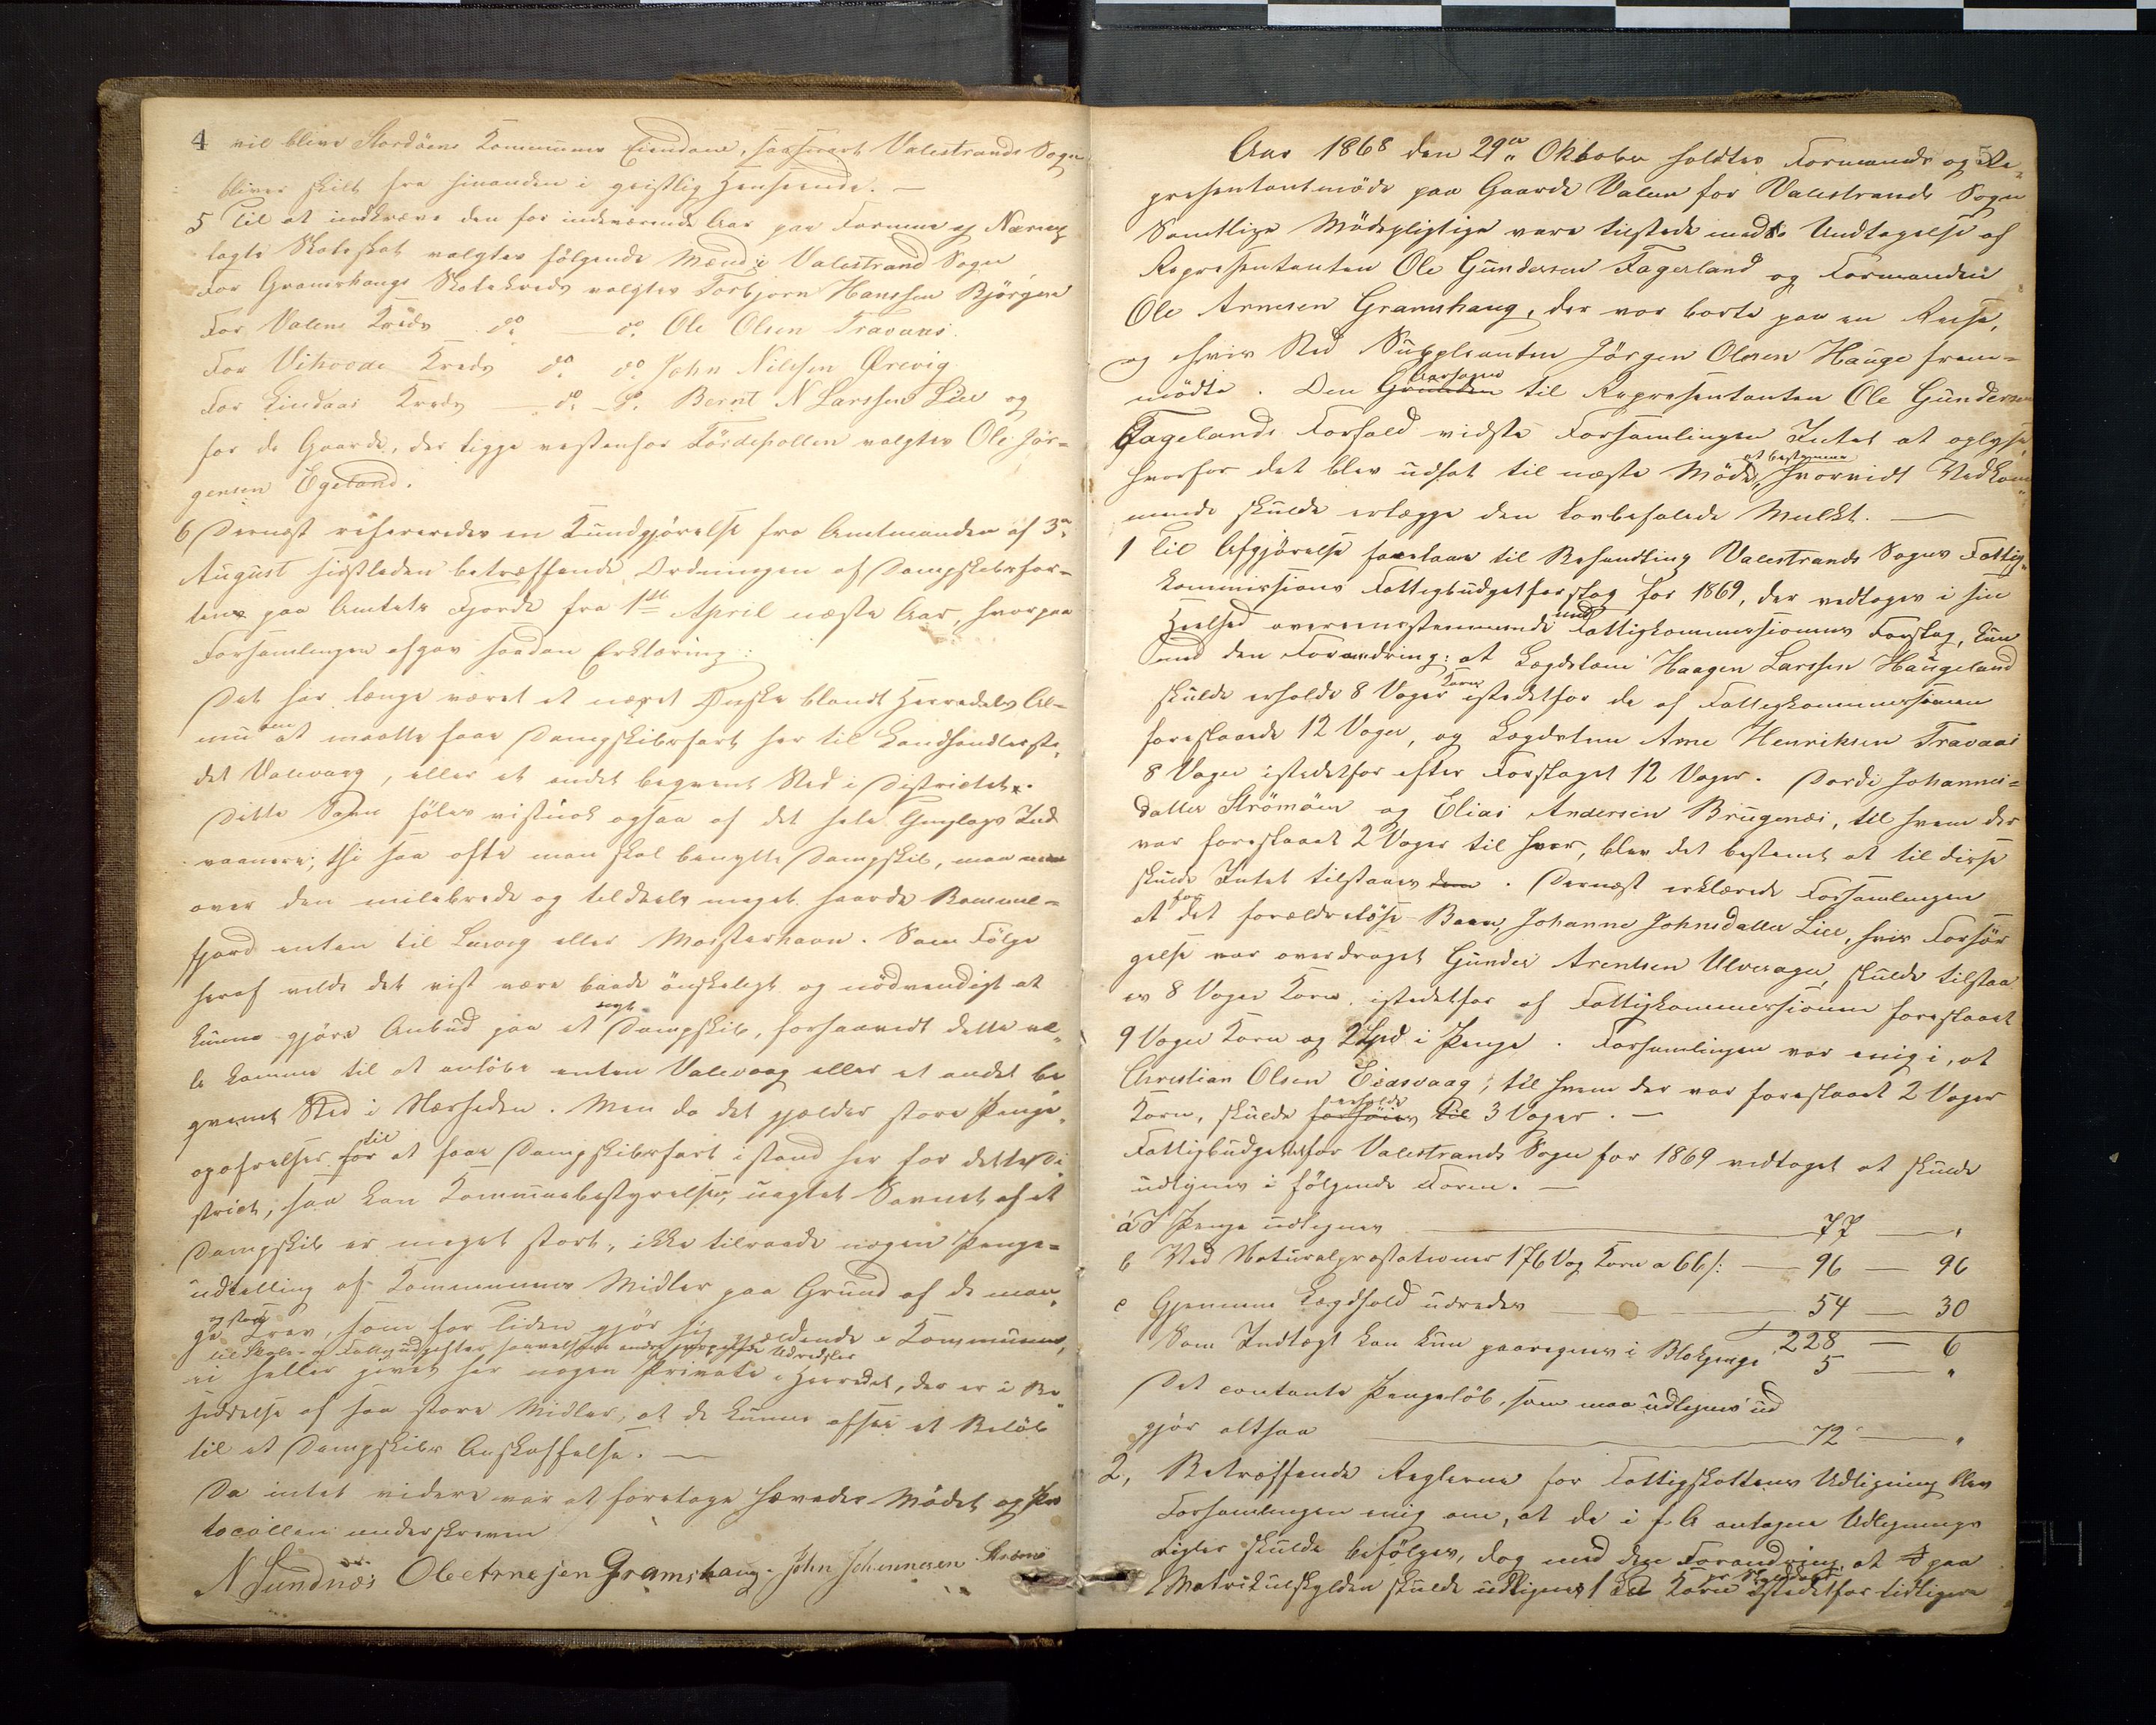 4 vil blive Stordöens Kommunes Eiendom, saasnart Valestrands Sogn
bliver skilt fra hinanden i geistlig Henseende. —
5 Til at indkræve den for indeværende Aar paa Formue og Næring
lagte Skoleskat valgtes følgende Mænd i Valestrand Sogn
For Gramshaugs Skolekreds valgtes Torbjørn Hanssen Bjørgen
For Valens Kreds do. — do. Ole Olsen Travaas
For Vihovde Kreds do. do. John Nilssen Ørevig
For Eindaas Kreds — do. — do. Bernt N Larssen Lie og
for de Gaarde, der ligge vestenfor Førdepollen valgtes Ole Jör-
gensen Egeland.
6 Dernæst refereredes en Kundgjørelse fra Amtmanden af 3die
August sidstleden betræffende Ordningen af Dampskibsfar-
ten paa Amtets Fjorde fra 1ste April næste Aar, hvorpaa
Forsamlingen afgav saadan Erklæring:
Det har længe været et næret Ønske blandt Herredets Al-
muen at maatte faae Dampskibsfart her til Landhandlerste-
det Valevaag, eller et andet beqvemt Sted i Districtet.
Dette Savn föles vistnok ogsaa af det hele Hruglags Ind
vaanere; thi saa ofte man skal benytte Dampskib, maa man
over den milebrede og tildeels meget haarde Bommel-
fjord enten til Lervig eller Mosterhavn. Som Fölge
heraf vilde det vist være baade önskeligt og nödvendigt at
kunne gjöre Anbud paa et sagt Dampskib, forsaavidt dette vil-
de komme til at anlöbe enten Valevaag eller et andet be
qvemt Sted i Nærheden. Men da det gjælder store Penge-
opofrelser for til at faae Dampskibsfart istand her for dette Di
strict, saa kan Kommunebestyrelsen, uagtet Savnet af et
Dampskib er meget stort, ikke tilraade nogen Penge-
udtælling af Kommunens Midler paa Grund af de man-
ge og store Krav, som for Tiden gjör sig gjældende i Kommunen,
til Skole- og Fattigudgifter saavelsom andre Udredsler
ei heller gives her nogen Private i Herredet, der er i Be-
siddelse af saa store Midler, at de kunne afsee et Belöb
til et Dampskibs Anskaffelse. —
Da intet videre var at foretage hævedes Mödet og Pro
tocollen underskreven
N Sundnæs Ole Arnesen Gramshaug. John Johannesen Strömö
Aar 1868 den 29de Oktober holdtes Formands og Re-
presentantmöde paa Gaarde Valen for Valestrands Sogn
Samtlige Mödepligtige vare tilstede med Undtagelse af
Representanten Ole Gundersen Fagerland og Formanden
Ole Arnesen Gramshaug, der var borte paa en Reise,
og i hvis Sted Suppleanten Jörgen Olssen Hauge frem-
mödte. Den Grunden Aarsagen til Representanten Ole Gundersen
Fagelands Forfald vidste Forsamlingen Intet at oplyse
hvorfor det blev udsat til næste Möde at bestemme, hvorvidt Vedkom-
mende skulde erlægge den lovbefalede Mulkt. —
1 Til Afgjörelse foretages til Behandling Valestrands Sogns Fattig-
kommissions Fattigbudgetforslag for 1869, der vedtoges i sin
Heelhed overeensstemmende med Fattigkommissionens Forslag, kun
med den Forandring: at Lægdslem Haagen Larssen Haugeland
skulde erholde 8 Voger Korn istedetfor de af Fattigkommissionen
foreslaaede 12 Voger, og Lægdslem Arne Henriksen Travaas
8 Voger istedetfor efter Forslaget 12 Voger. Dordi Johannes-
datter Strömöen og Elias Andersen Brugenæs, til hvem der
var foreslaaet 2 Voger til hver, blev det bestemt at til disse
skulde Intet tilstaaes dem. Dernæst erklærede Forsamlingen
at for det forældrelöse Barn, Johanne Johnsdatter Lie, hvis Forsör
gelse var overdraget Gunder Arentsen Ulversager, skulde tilstaa
es 8 Voger Korn, istedetfor af Fattigkommissionen foreslaaet
9 Voger Korn og 2 Spd i Penge. Forsamlingen var enig i, at
Christian Olsen Eidsvaag; til hvem der var foreslaaet 2 Voger
Korn, skulde forhöies til erholde 3 Voger. —
Fattigbudgettet for Valestrands Sogn for 1869 vedtoget at skulde
udlignes i fölgende Form. —
a I Penge udlignes — 77 — "
b Ved Naturalpræstationer 176 Vog Korn a 66 s: — 96 — 96
c Gjennem Lægdhold udredes — 54 — 30
228 — 6
Som Indtægt kan kun paaregnes i Blokpenge 5 — "
Det contante Pengelöb, som maa udlignes ud
gjör altsaa — 72 — "
2, Betræffende Reglerne for Fattigskattens Udligning blev
Forsamlingen enig om, at de i f. A antagne Udlignings
regler skulde befölges, dog med den Forandring at paa
Matrikulskylden skulde udlignes 1 Korn istedetfor tidligere